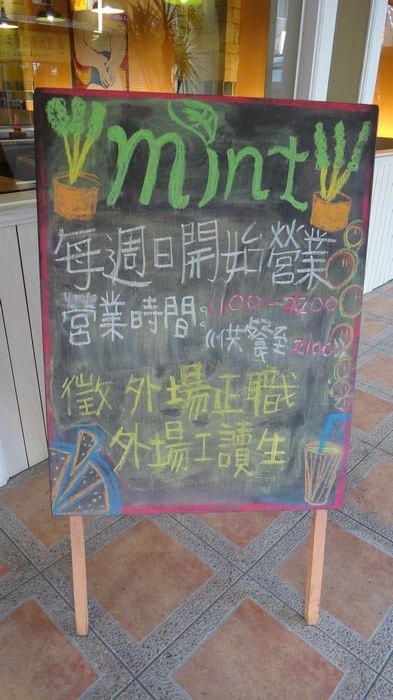 mint
每週日開始營業
營業時間。1100-2200
《供餐至2100》
徵外場正職
外場工讀生